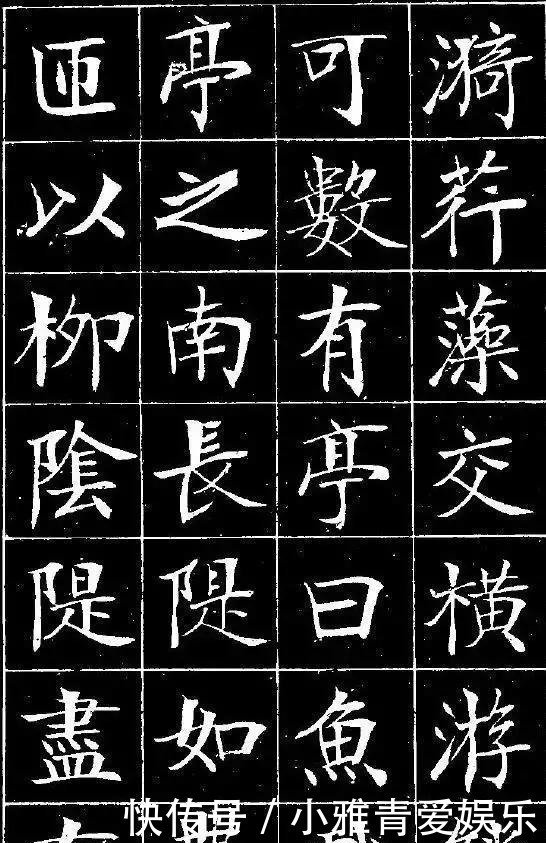 漪荇藻交横游
可數有亭曰魚
亭之南長隄如
匝以柳陰隄盡
快传号/小雅青爱娱乐